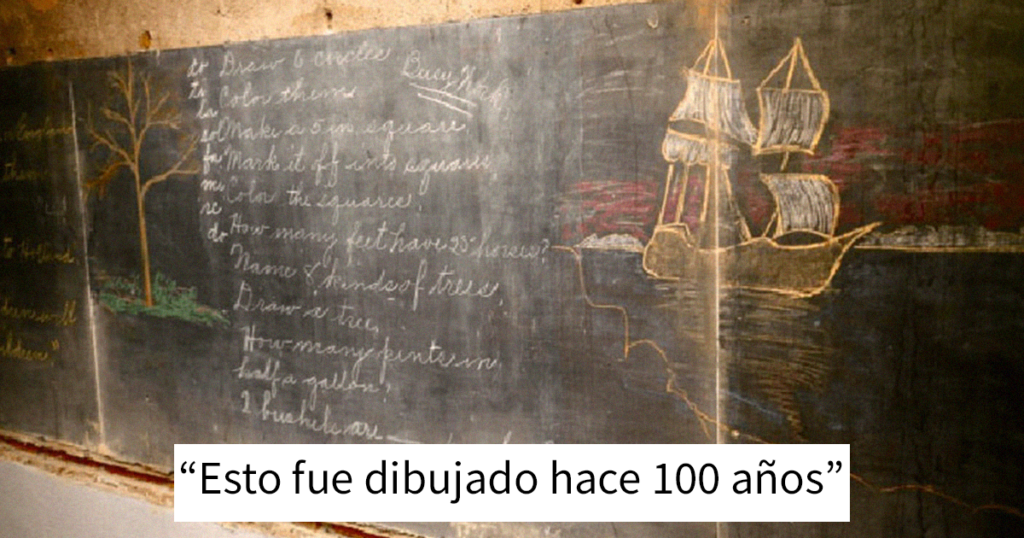 Draw 6 circles
Busy Work
do
ti Color them
la
sol Make a 5 in square
fa Mark it off into squares,
mi Color the squares.
re
do How many feet have 25 horses?
Name 8 kinds of trees,
Draw a tree,
How many pints in
half a gallon?
2 bushels are
them
to Holland
“Esto fue dibujado hace 100 años”